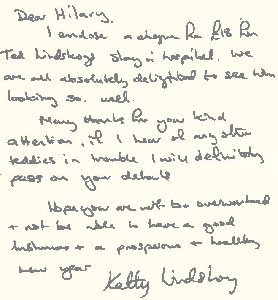 Dear Hilary,
I enclose a cheque for £18 for
Ted Lindskogs stay in hospital. We
are all absolutely delighted to see him
looking so well.
Many thanks for your kind
attention, if I hear of any other
teddies in trouble I will definitely
pass on your details
Hope you are not too overworked
+ not be able to have a good
+ a prosperous + healthy
new year
Lindskog